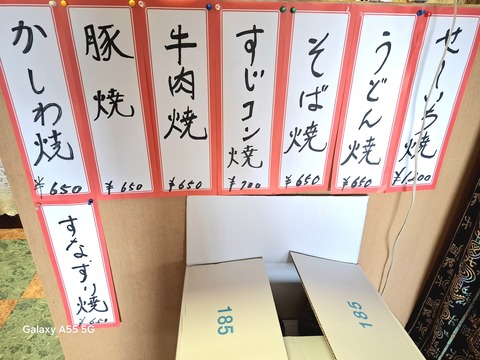 かしわ焼
¥650
豚焼
¥650
牛肉焼
¥650
すじコン焼
¥700
そば焼
¥650
うどん焼
¥650
¥1200
すなずり焼
¥650
185
185
Galaxy A55 5G